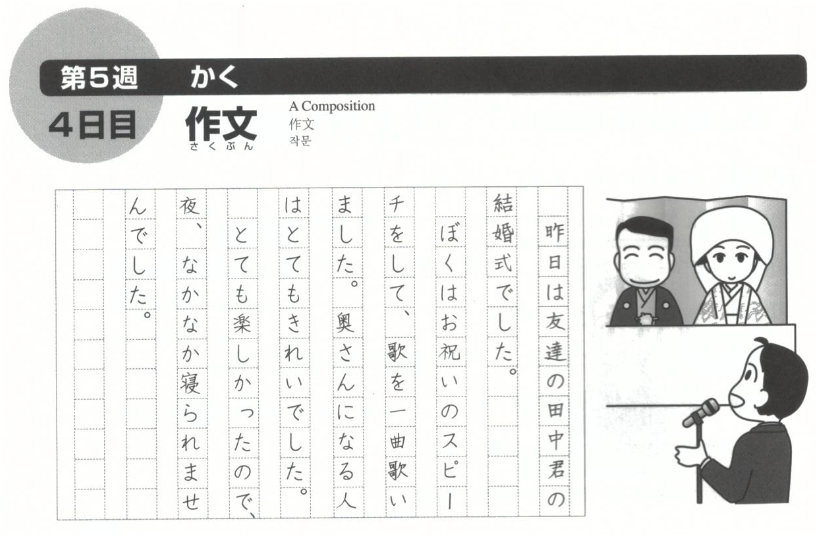 第5週 かく
4日目 作文
さくぶん
A Composition
作文
작문
昨日は友達の田中君の
結婚式でした。
ぼくはお祝いのスピー
チをして、歌を一曲歌い
ました。奥さんになる人
はとてもきれいでした。
とても楽しかったので、
夜、なかなか寝られませ
んでした。